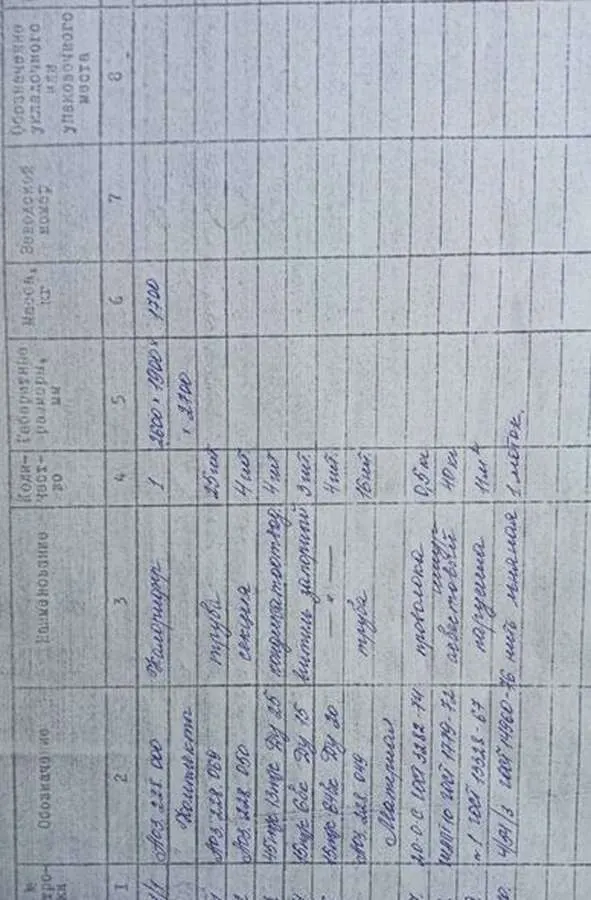 № стро- ки Обозначение Наименование Коли- чест- во Габаритные размеры, мм Масса, кг Заводской номер Обозначение укладочного или упаковочного места
1 2 3 4 5 6 7 8
АОЗ 228 000 Калорифер 1 2600 × 1900 × 1700
× 2700
Комплекты
АОЗ 228 069 труба 25 шт
АОЗ 228 050 секция 4 шт
45пр 13пр Ду 25 конденсатоотвод. 4 шт
Ду 15 вентиль запорный 3 шт.
Ду 20 — " — 4 шт.
АОЗ 228 049 труба 16 шт.
Материал
20-0-С ГОСТ 3282-74 проволока 0,5 кг
ГОСТ 1779-72 шнур асбестовый 40 кг
ГОСТ 15528-67 парусина 11 м²
ГОСТ 14960-76 нить льняная 1 моток.